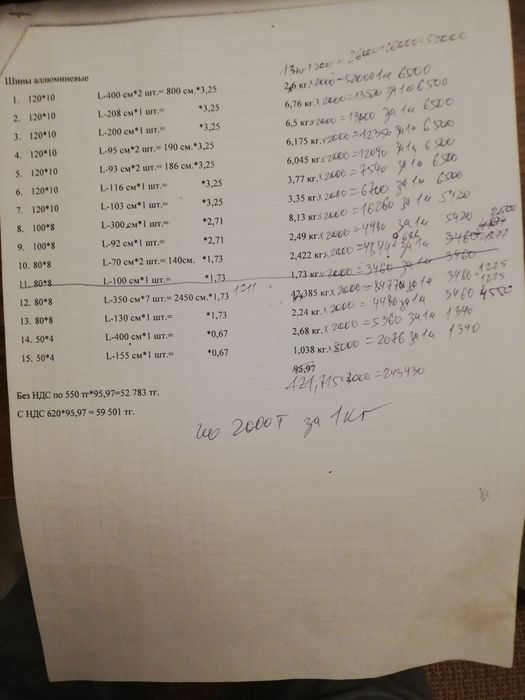 13кг х 2000 = 26000+26000=52000
Шины аллюминевые
1. 120*10 L-400 см*2 шт.= 800 см.*3,25 26 кг.х2000=52000 1м 6500
2. 120*10 L-208 см*1 шт.= *3,25 6,76 кг.х2000=13520 за1м 6500
3. 120*10 L-200 см*1 шт.= *3,25 6,5 кг.х2000=13000 за 1м 6500
4. 120*10 L-95 см*2 шт.= 190 см.*3,25 6,175 кг.х2000=12350 за1м 6500
5. 120*10 L-93 см*2 шт.= 186 см.*3,25 6,045 кг.х2000=12090 за1м 6500
6. 120*10 L-116 см*1 шт.= *3,25 3,77 кг.х2000=7540 за1м 6500
7. 120*10 L-103 см*1 шт.= *3,25 3,35 кг.х2000=6700 за1м 6500
8. 100*8 L-300 см*1 шт.= *2,71 8,13 кг.х2000=16260 за1м 5420
9. 100*8 L-92 см*1 шт.= *2,71 2,49 кг.х2000=4980 за1м 5420
10. 80*8 L-70 см*2 шт.= 140см. *1,73 2,422 кг.х2000=4844 за1м 3460
11. 80*8 L-100 см*1 шт.= *1,73 1,73 кг.х2000=3460 за1м 3460
12. 80*8 L-350 см*7 шт.= 2450 см.*1,73 42,385 кг.х2000=84770 за1м 3460 1225
13. 80*8 L-130 см*1 шт.= *1,73 2,24 кг.х2000=4480 за1м 3460 4550
14. 50*4 L-400 см*1 шт.= *0,67 2,68 кг.х2000=5360 за1м 1340
15. 50*4 L-155 см*1 шт.= *0,67 1,038 кг.х2000=2076 за1м 1340
95,97
121,715х2000=243430
Без НДС по 550 тг*95,97=52 783 тг.
С НДС 620*95,97 = 59 501 тг.
по 2000т за 1кг